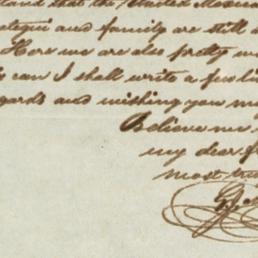 land that the United Mexica
ategui and family are still a
Here we are also pretty w
can I shall write a few lin
gards and wishing you m
Believe me
my dear f
most tru